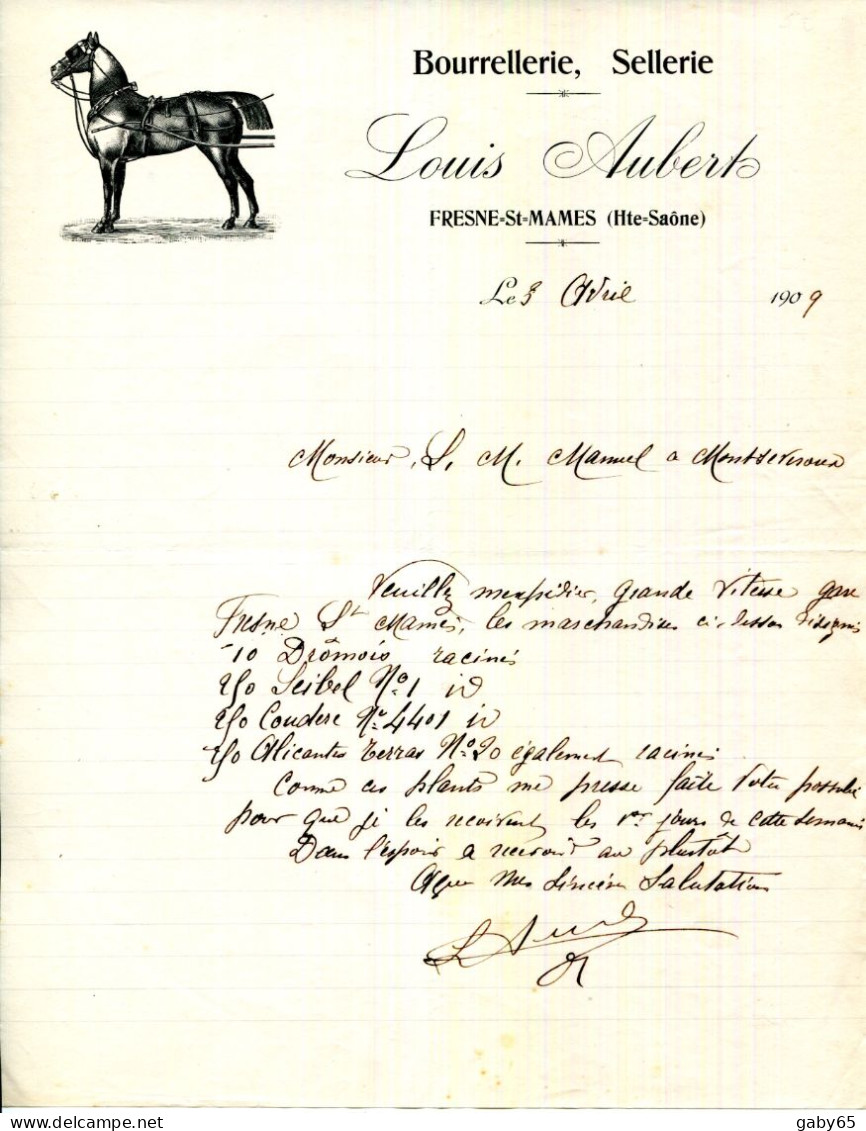 Bourrellerie, Sellerie
Louis Aubert
FRESNE=St=MAMES (Hte=Saône)
Le 3 Avril 1909
Monsieur, L. M. Manuel a
Veuillz mexpidier, grande Vitesse gare
Fresne St Mamès, les marchandises ci, dessou
10 Drômois racinés
250 Seibel No 1 id
250 Couderc No 4401 id
250 Alicantes Terras No 20 également racinés
Comme ces plants me presse faite votre possible
pour que je les recoivent les 1er jours de cette semaine
Dans l'espoir a recevoir au plustôt
Agrée Mes Sincères Salutations
L Aubert
delcampe.net
gaby65